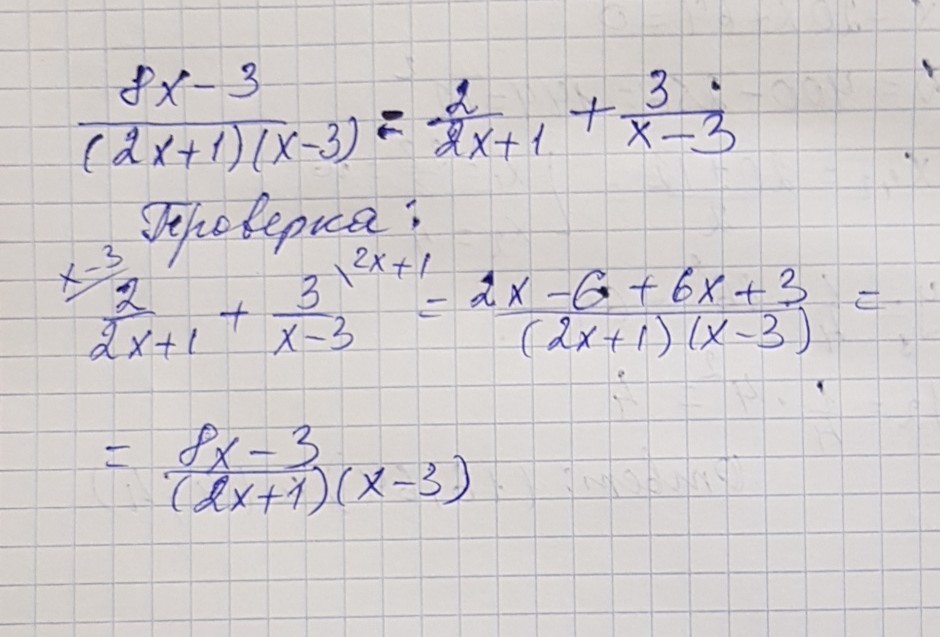 8x-3/(2x+1)(x-3) = 2/2x+1 + 3/x-3
Проверка:
x-3/ 2/2x+1 + 3/x-3 \2x+1 = 2x-6+6x+3/(2x+1)(x-3) =
= 8x-3/(2x+1)(x-3)